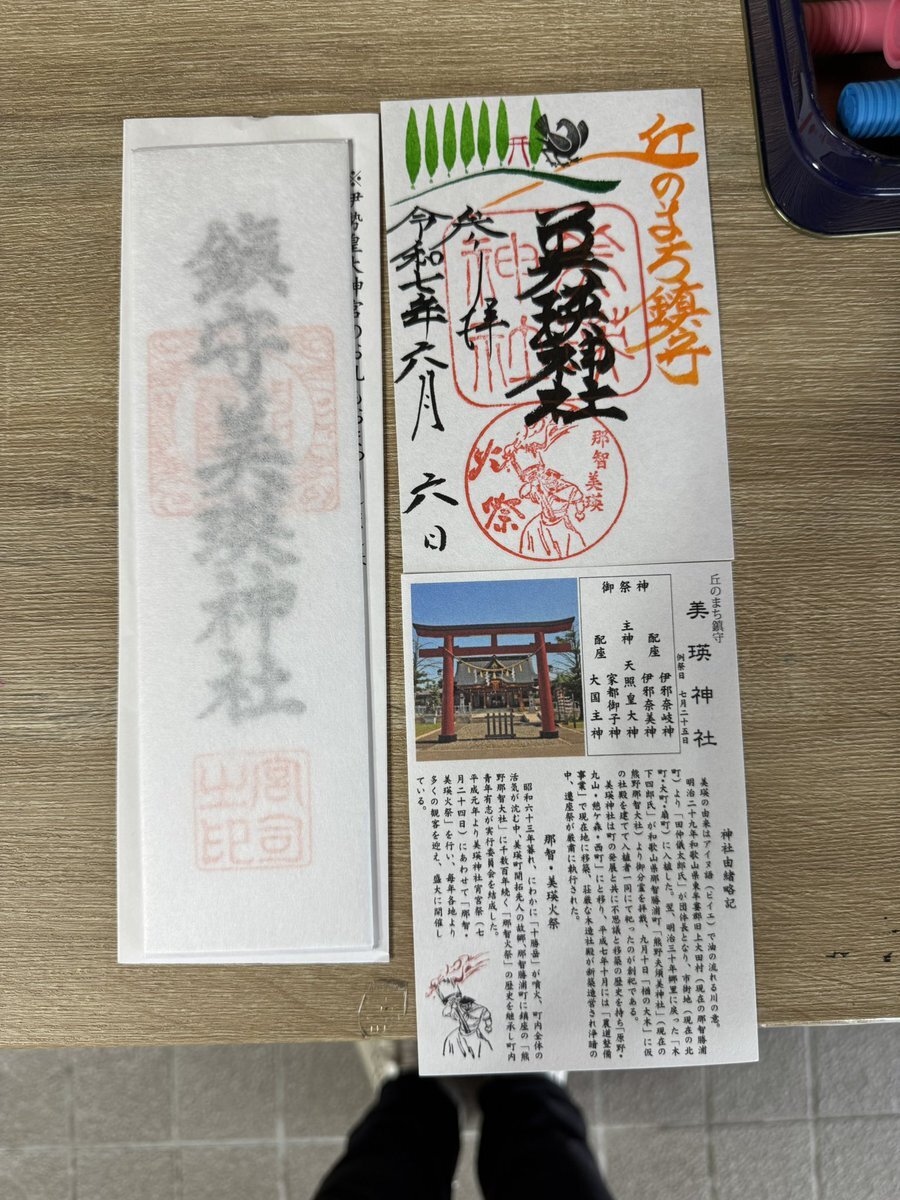 鎮守美瑛神社
宮司之印
※伊勢皇大神宮のお札の
丘のまち鎮守
美瑛神社
参拝
令和七年六月六日
那智美瑛
火祭
丘のまち鎮守
美瑛神社
例祭日 七月二十五日
御祭神
配座 伊邪奈岐神
伊邪奈美神
主神 天照皇大神
配座 家都御子神
大国主神
神社由緒略記
美瑛の由来はアイヌ語(ピイエ)で油の流れる川の意。
明治二十九年和歌山県東牟婁郡旧上太田村(現在の那智勝浦
町)より「田仲儀太郎氏」が団体長となり、市街地(現在の北
町・大町・扇町)に入植した。翌、明治三十年郷里に戻った「木
下四郎氏」が和歌山県那智勝浦町「熊野夫須美神社」(現在の
熊野那智大社)より御分霊を拝戴、九月十日「楢の大木」に仮
の社殿を建てて入植者一同にて祀ったのが創祀である。
美瑛神社は町の発展と共に不思議と移築の歴史を持ち「原野・
丸山・憩ケ森・西町」にと移り、平成七年十月には「農道整備
事業」で現在地に移築、荘厳な木造社殿が新築造営され浄暗の
中、遷座祭が厳粛に執行された。
那智・美瑛火祭
昭和六十三年暮れ、にわかに「十勝岳」が噴火、町内全体の
活気が沈む中、美瑛町開拓先人の故郷、那智勝浦町に鎮座の「熊
野那智大社」に千数百年続く「那智火祭」の歴史を継承し町内
青年有志が実行委員会を結成した。
平成元年より美瑛神社宵宮祭(七
月二十四日)にあわせて「那智・
美瑛火祭」を行い、毎年各地より
多くの観客を迎え、盛大に開催し
ている。